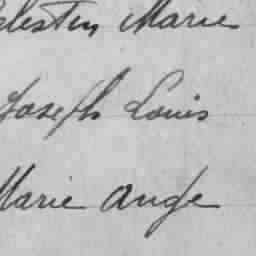 Celestin Marie
Joseph Louis
Marie Ange